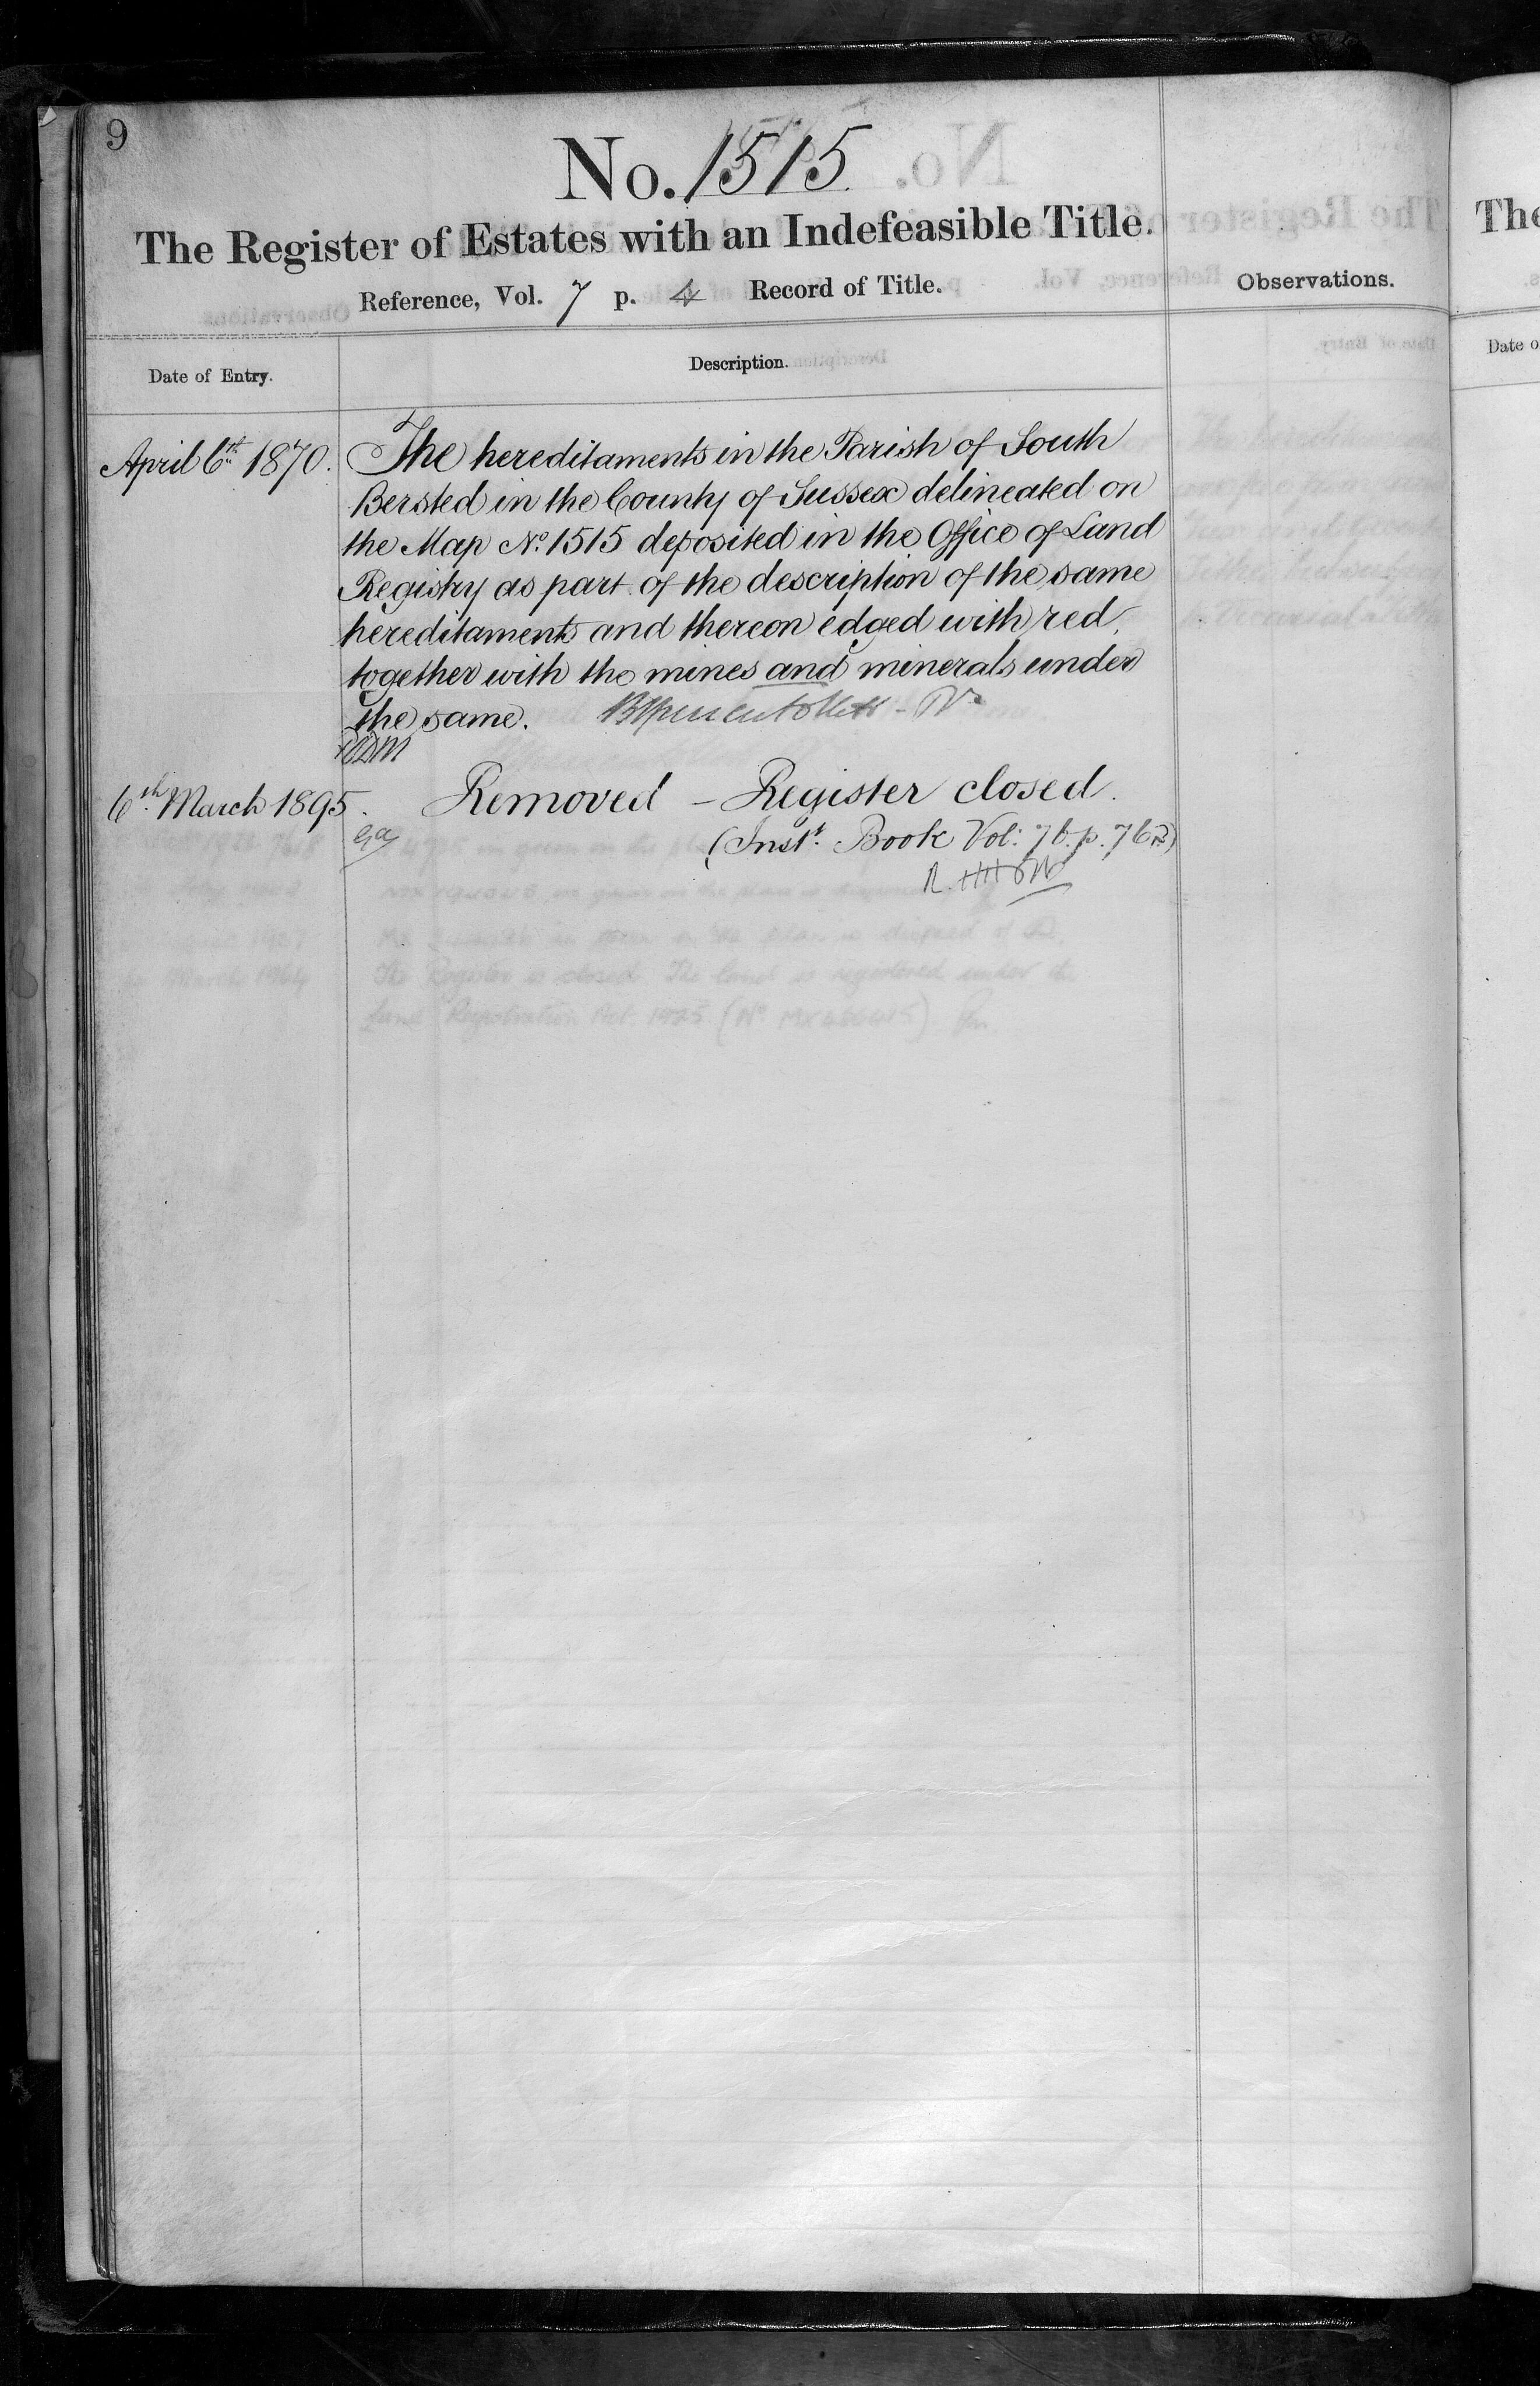 9
No. 1515.
The Register of Estates with an Indefeasible Title.
Reference, Vol. 7 p. 4 Record of Title.
Observations.
Date of Entry.
Description.
April 6th 1870.
The hereditaments in the Parish of South
Bersted in the County of Sussex delineated on
the Map No. 1515 deposited in the Office of Land
Registry as part of the description of the same
hereditaments and thereon edged with red,
together with the mines and minerals under
the same.
6th March 1895.
Removed – Register closed.
(Inst. Book Vol: 76. p. 762)
The
Date o